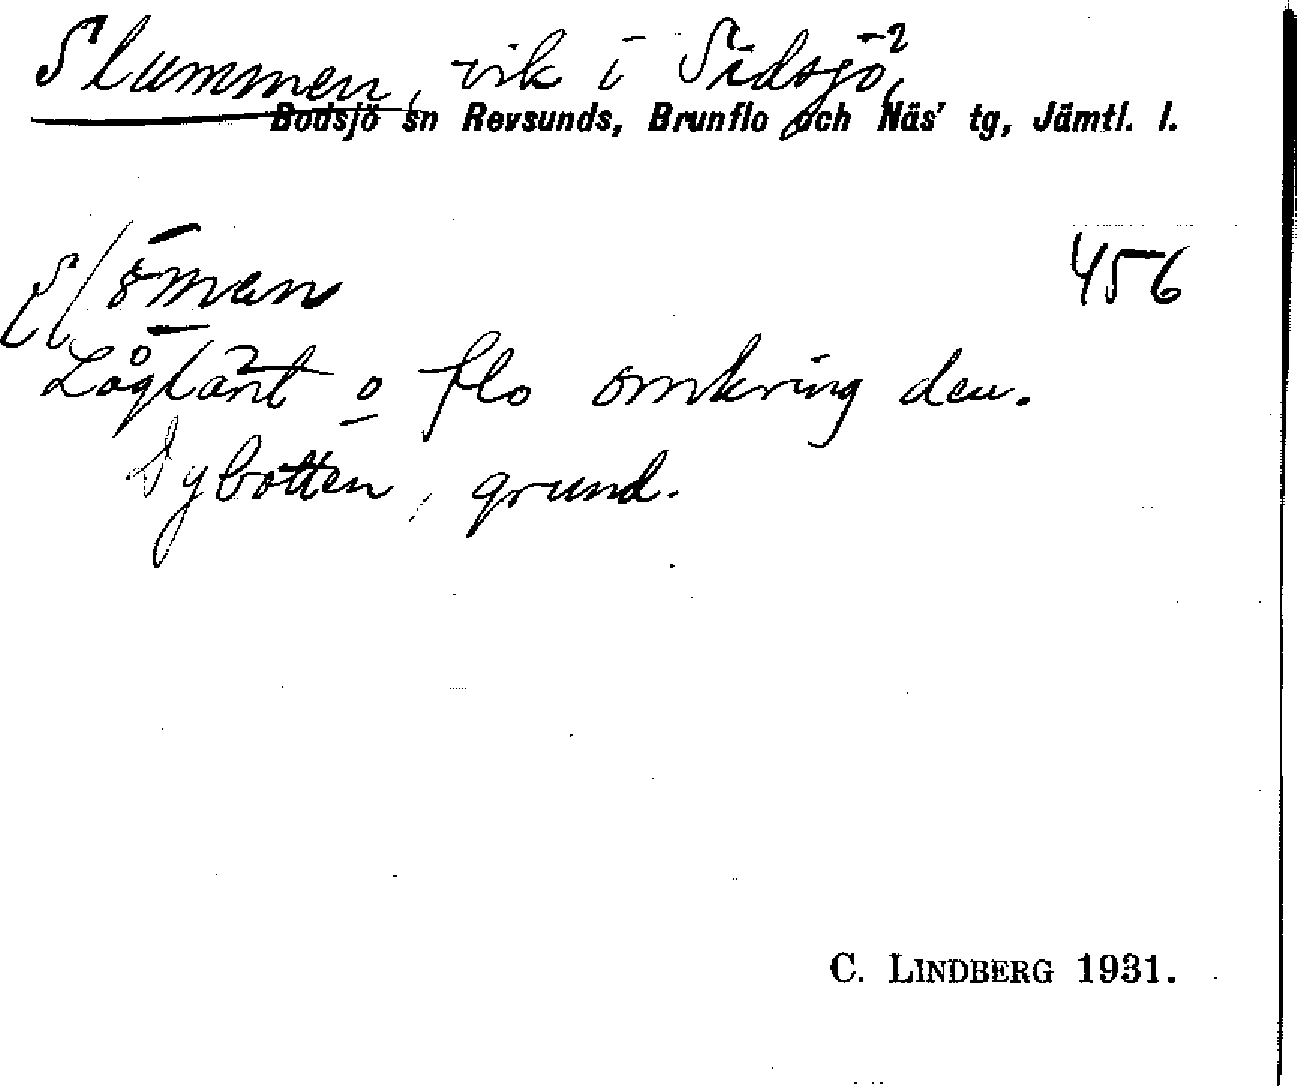 Slummen, vik i Sidsjö,
Bodsjö sn Revsunds, Brunflo och Näs' tg, Jämtl. l.
456
Låglänt o flo omkring den.
Dybotten, grund.
C. LINDBERG 1931.